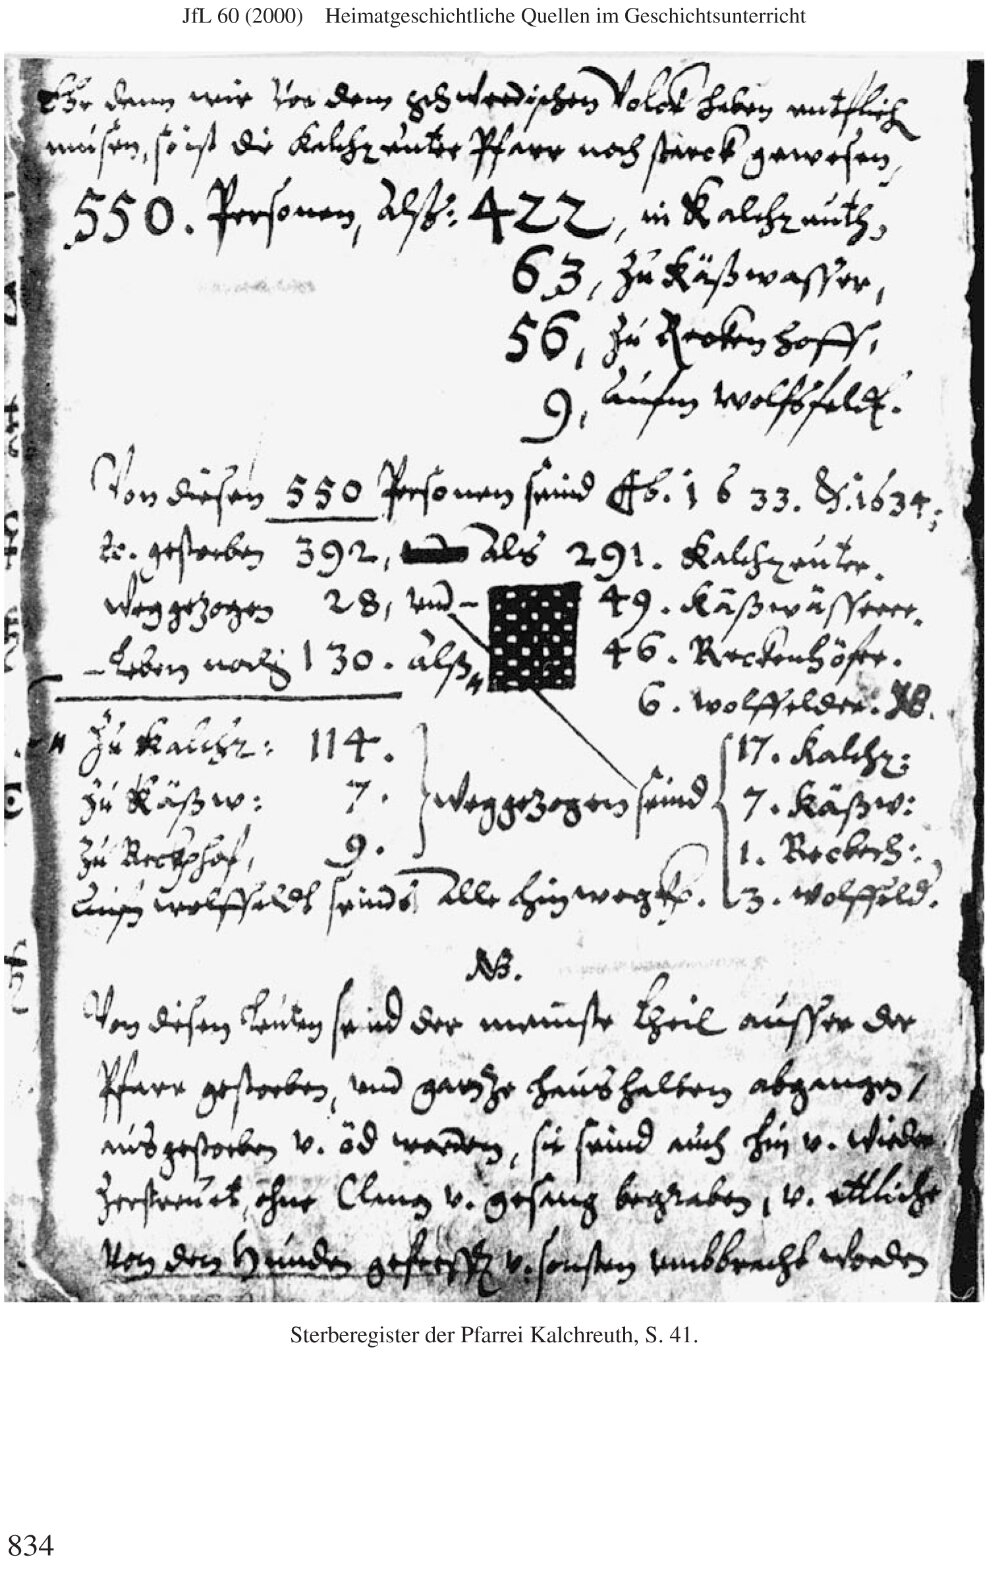 JfL 60 (2000) Heimatgeschichtliche Quellen im Geschichtsunterricht
Ehe dann wir vor dem schwedischen Volck haben entflieh
müsen, so ist die Kalchreuter Pfarr noch starck gewesen,
550. Personen, Alß: 422, in Kalchreuth,
63, zu Käßwasser,
56, zu Reckenhoff,
9, aufm Wolfsfeldt.
Von diesen 550 Personen seind 1633. & 1634;
gestorben 392, Als 291. Kalchreuter.
weggezogen 28, und 49. Käßwässerer.
Leben noch 130. Alß 46. Reckenhöfer.
6. Wolffelder. NB.
Zu Kalchr: 114. 17. Kalchr:
zu Käßw: 7. weggezogen seind 7. Käßw:
zu Reckhof, 9. 1. Reckeh:
aufm Wolffseldt seinds Alle hinweg. 3. Wolffeld.
NB.
Von diesen Leuten seind der meinste theil ausser der
Pfarr gestorben, und gantze haushalten abgangen,
ausgestorben v. öd worden, sie seind auch hin v. wieder
zerstreuet, ohne Clang v. gesang begraben, v. ettliche
von den Hunden gefressen v. sonsten umbbracht worden
Sterberegister der Pfarrei Kalchreuth, S. 41.
834